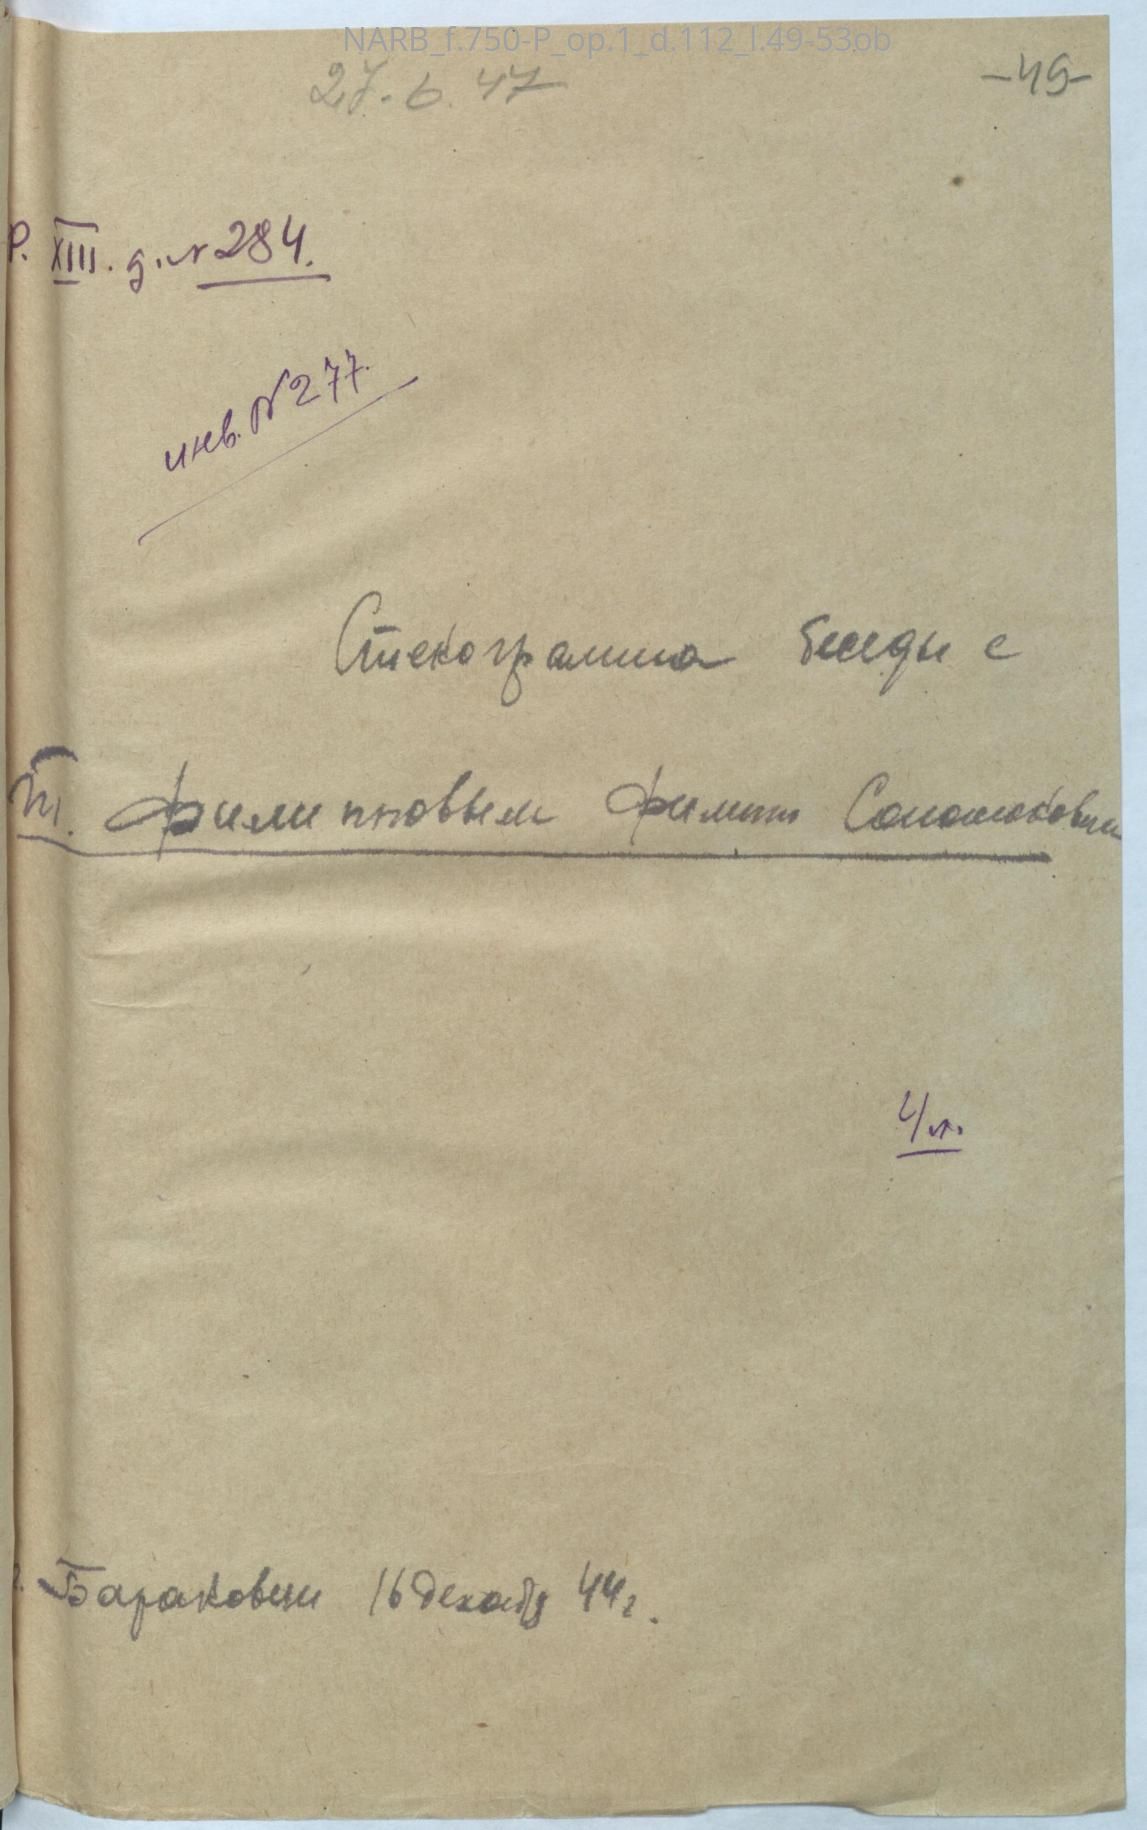 NARB_f.750-P_op.1_d.112_l.49-53ob
27. 6. 47
-49-
Р. XIII. д. № 284.
инв. № 277.
Стенограмма беседы с
Филипповым Филипп Соломоновичем
4 л.
Барановичи 16 декабря 44 г.